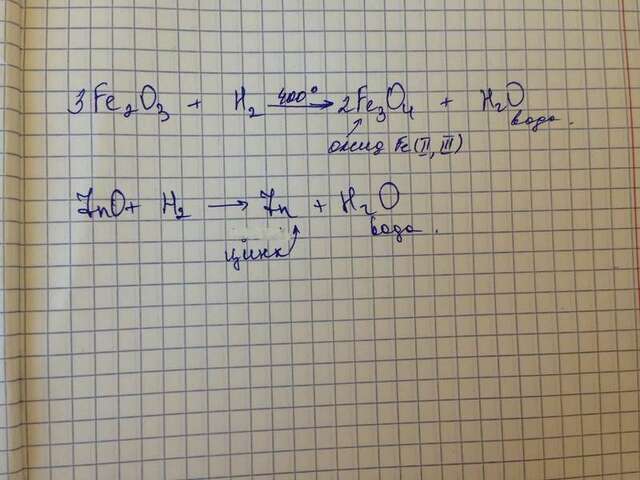 3Fe₂O₃ + H₂ 400° → 2Fe₃O₄ + H₂O
вода.
оксид Fe(II, III)
ZnO + H₂ → Zn + H₂O
вода.
цинк